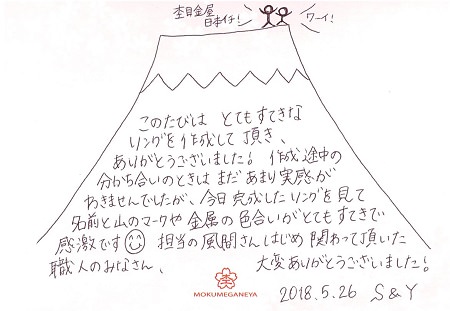 杢目金屋
日本イチ!
ワーイ!
このたびは とてもすてきな
リングを作成して頂き、
ありがとうございました! 作成途中の
分かち合いのときは まだ あまり 実感が
わきませんでしたが、今日 完成した リングを 見て
名前と山のマークや 金属の色合いがとてもすてきで
感激です 担当の風間さんはじめ 関わって頂いた
職人のみなさん、 大変ありがとうございました!
MOKUMEGANEYA
2018.5.26 S&Y